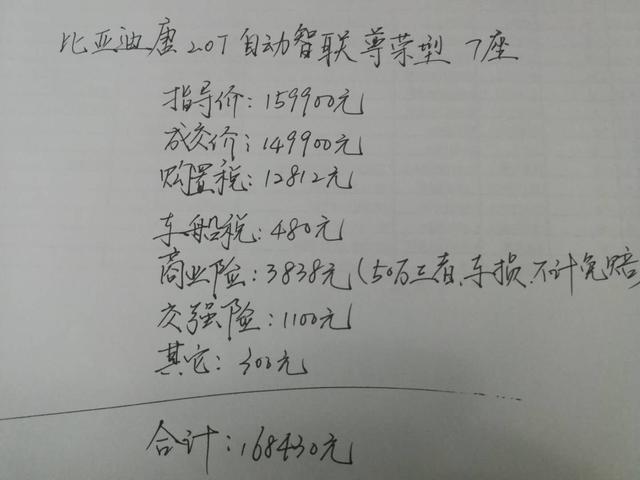 比亚迪唐 2.0T 自动智联尊荣型 7座
指导价：159900元
成交价：149900元
购置税：12812元
车船税：480元
商业险：3838元(50万三者、车损、不计免赔)
交强险：1100元
其它：300元
合计：168430元